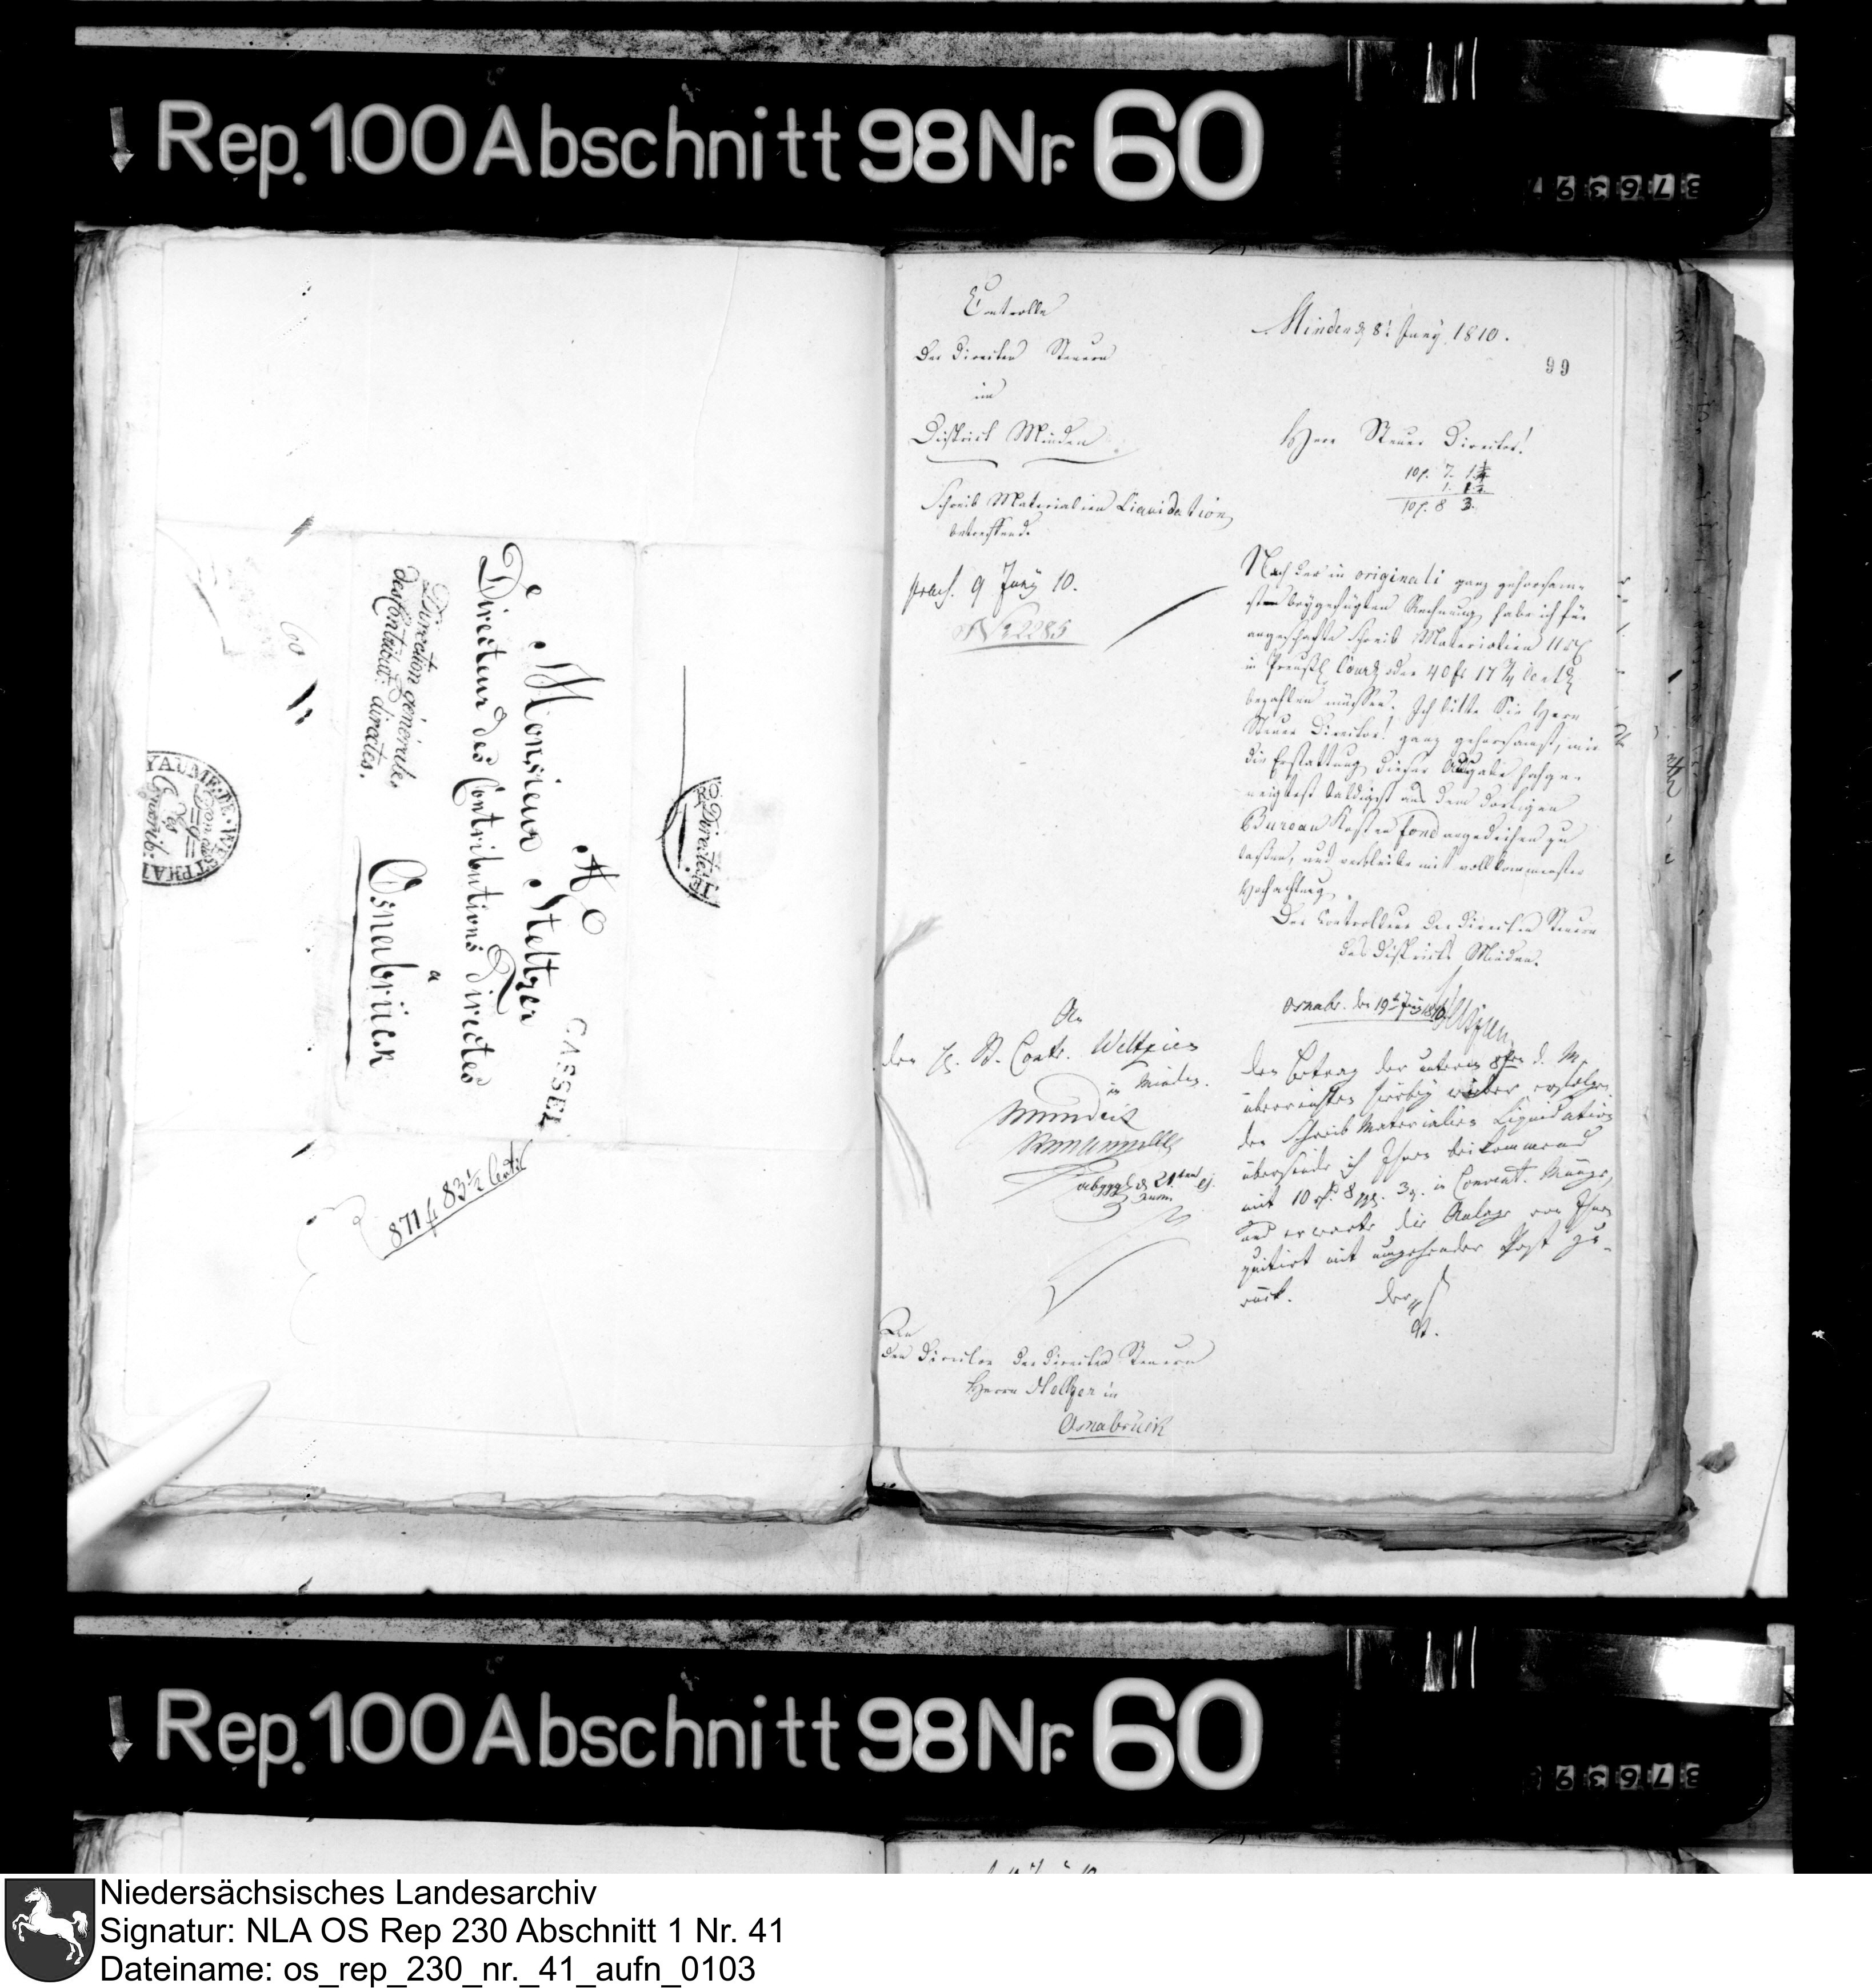 Rep. 100 Abschnitt 98 Nr. 60
A
Monsieur Steltzer
Directeur des Contributions directes
a
Osnabrück
Direction générale
des Contribut: directes.
CASSEL
871 f 83½ Cents
ROYAUME DE WESTPHAL
Controlle
der directen Steuern
im
District Minden
Schreib Materialien Liquidation
betreffend.
praes. 9 Juny 10.
No 2285
Minden d 8t Juny 1810.
99
Herr Steuer Director!
10 7. 1
1. 1
10 8 3.
Nach der in originali ganz gehorsam-
st beygefügten Rechnung habe ich für
angeschafte Schreib Materialien 11
in Preuß. Cour. oder 40 fr 17 Cent
bezahlen müssen. Ich bitte Sie Herr
Steuer Director! ganz gehorsamst, mir
die Erstattung dieser Ausgabe hochge-
neigtest baldigst aus dem dortigen
Bureau Kosten fond angedeihen zu
lassen, und verbleibe mit vollkommenster
Hochachtung
Der Controlleur der directen Steuern
des Districts Minden.
Osnabr. den 19t Juny 1810
An
den H. St. Contr. Weltzien
in Minden.
mundirt
abgeg. d 21ten ej.
Den Betrag der unterm 8ten d. M.
überreichten hierbey wieder erfolgen-
den Schreib Materialien Liquidation
übersende ich Ihnen beikommend
mit 10 8 3 in Convent. Münze,
und erwarte die Anlage von Ihnen
quitirt mit umgehender Post zu-
rück.
Der
St.
An
den Director der directen Steuern
Herrn Steltzer in
Osnabrück
Rep. 100 Abschnitt 98 Nr. 60
Niedersächsisches Landesarchiv
Signatur: NLA OS Rep 230 Abschnitt 1 Nr. 41
Dateiname: os_rep_230_nr._41_aufn_0103